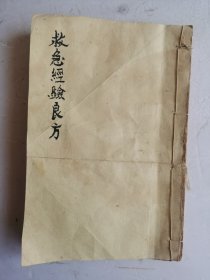 救急經驗良方